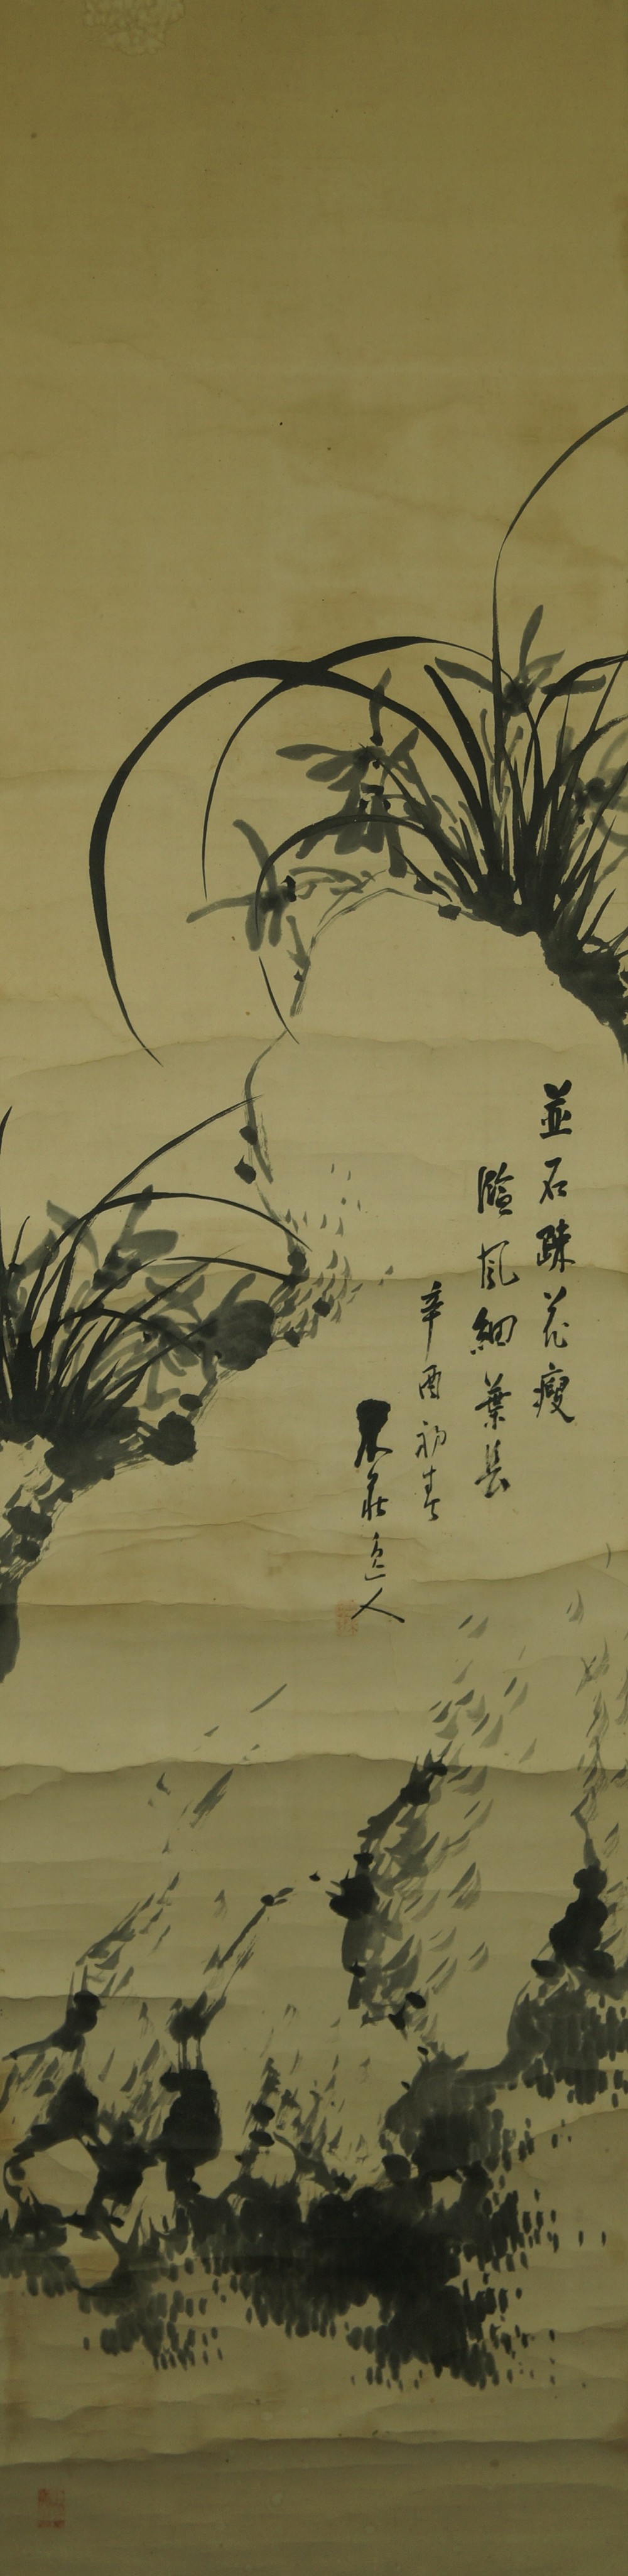 並石疎花瘦
臨風細葉長
辛酉初春
逸人